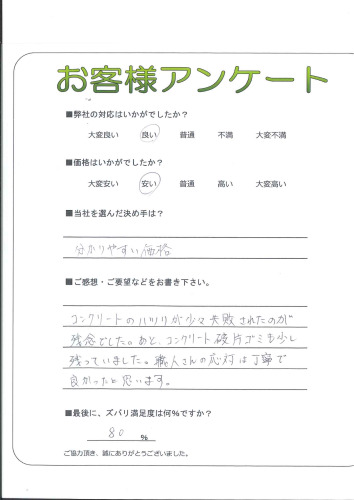 お客様アンケート
■弊社の対応はいかがでしたか？
大変良い 良い 普通 不満 大変不満
■価格はいかがでしたか？
大変安い 安い 普通 高い 大変高い
■当社を選んだ決め手は？
分かりやすい価格
■ご感想・ご要望などをお書き下さい。
コンクリートのハツリが少々失敗されたのが
残念でした。あと、コンクリート破片ゴミも少し
残っていました。職人さんの応対は丁寧で
良かったと思います。
■最後に、ズバリ満足度は何％ですか？
80 ％
ご協力頂き、誠にありがとうございました。